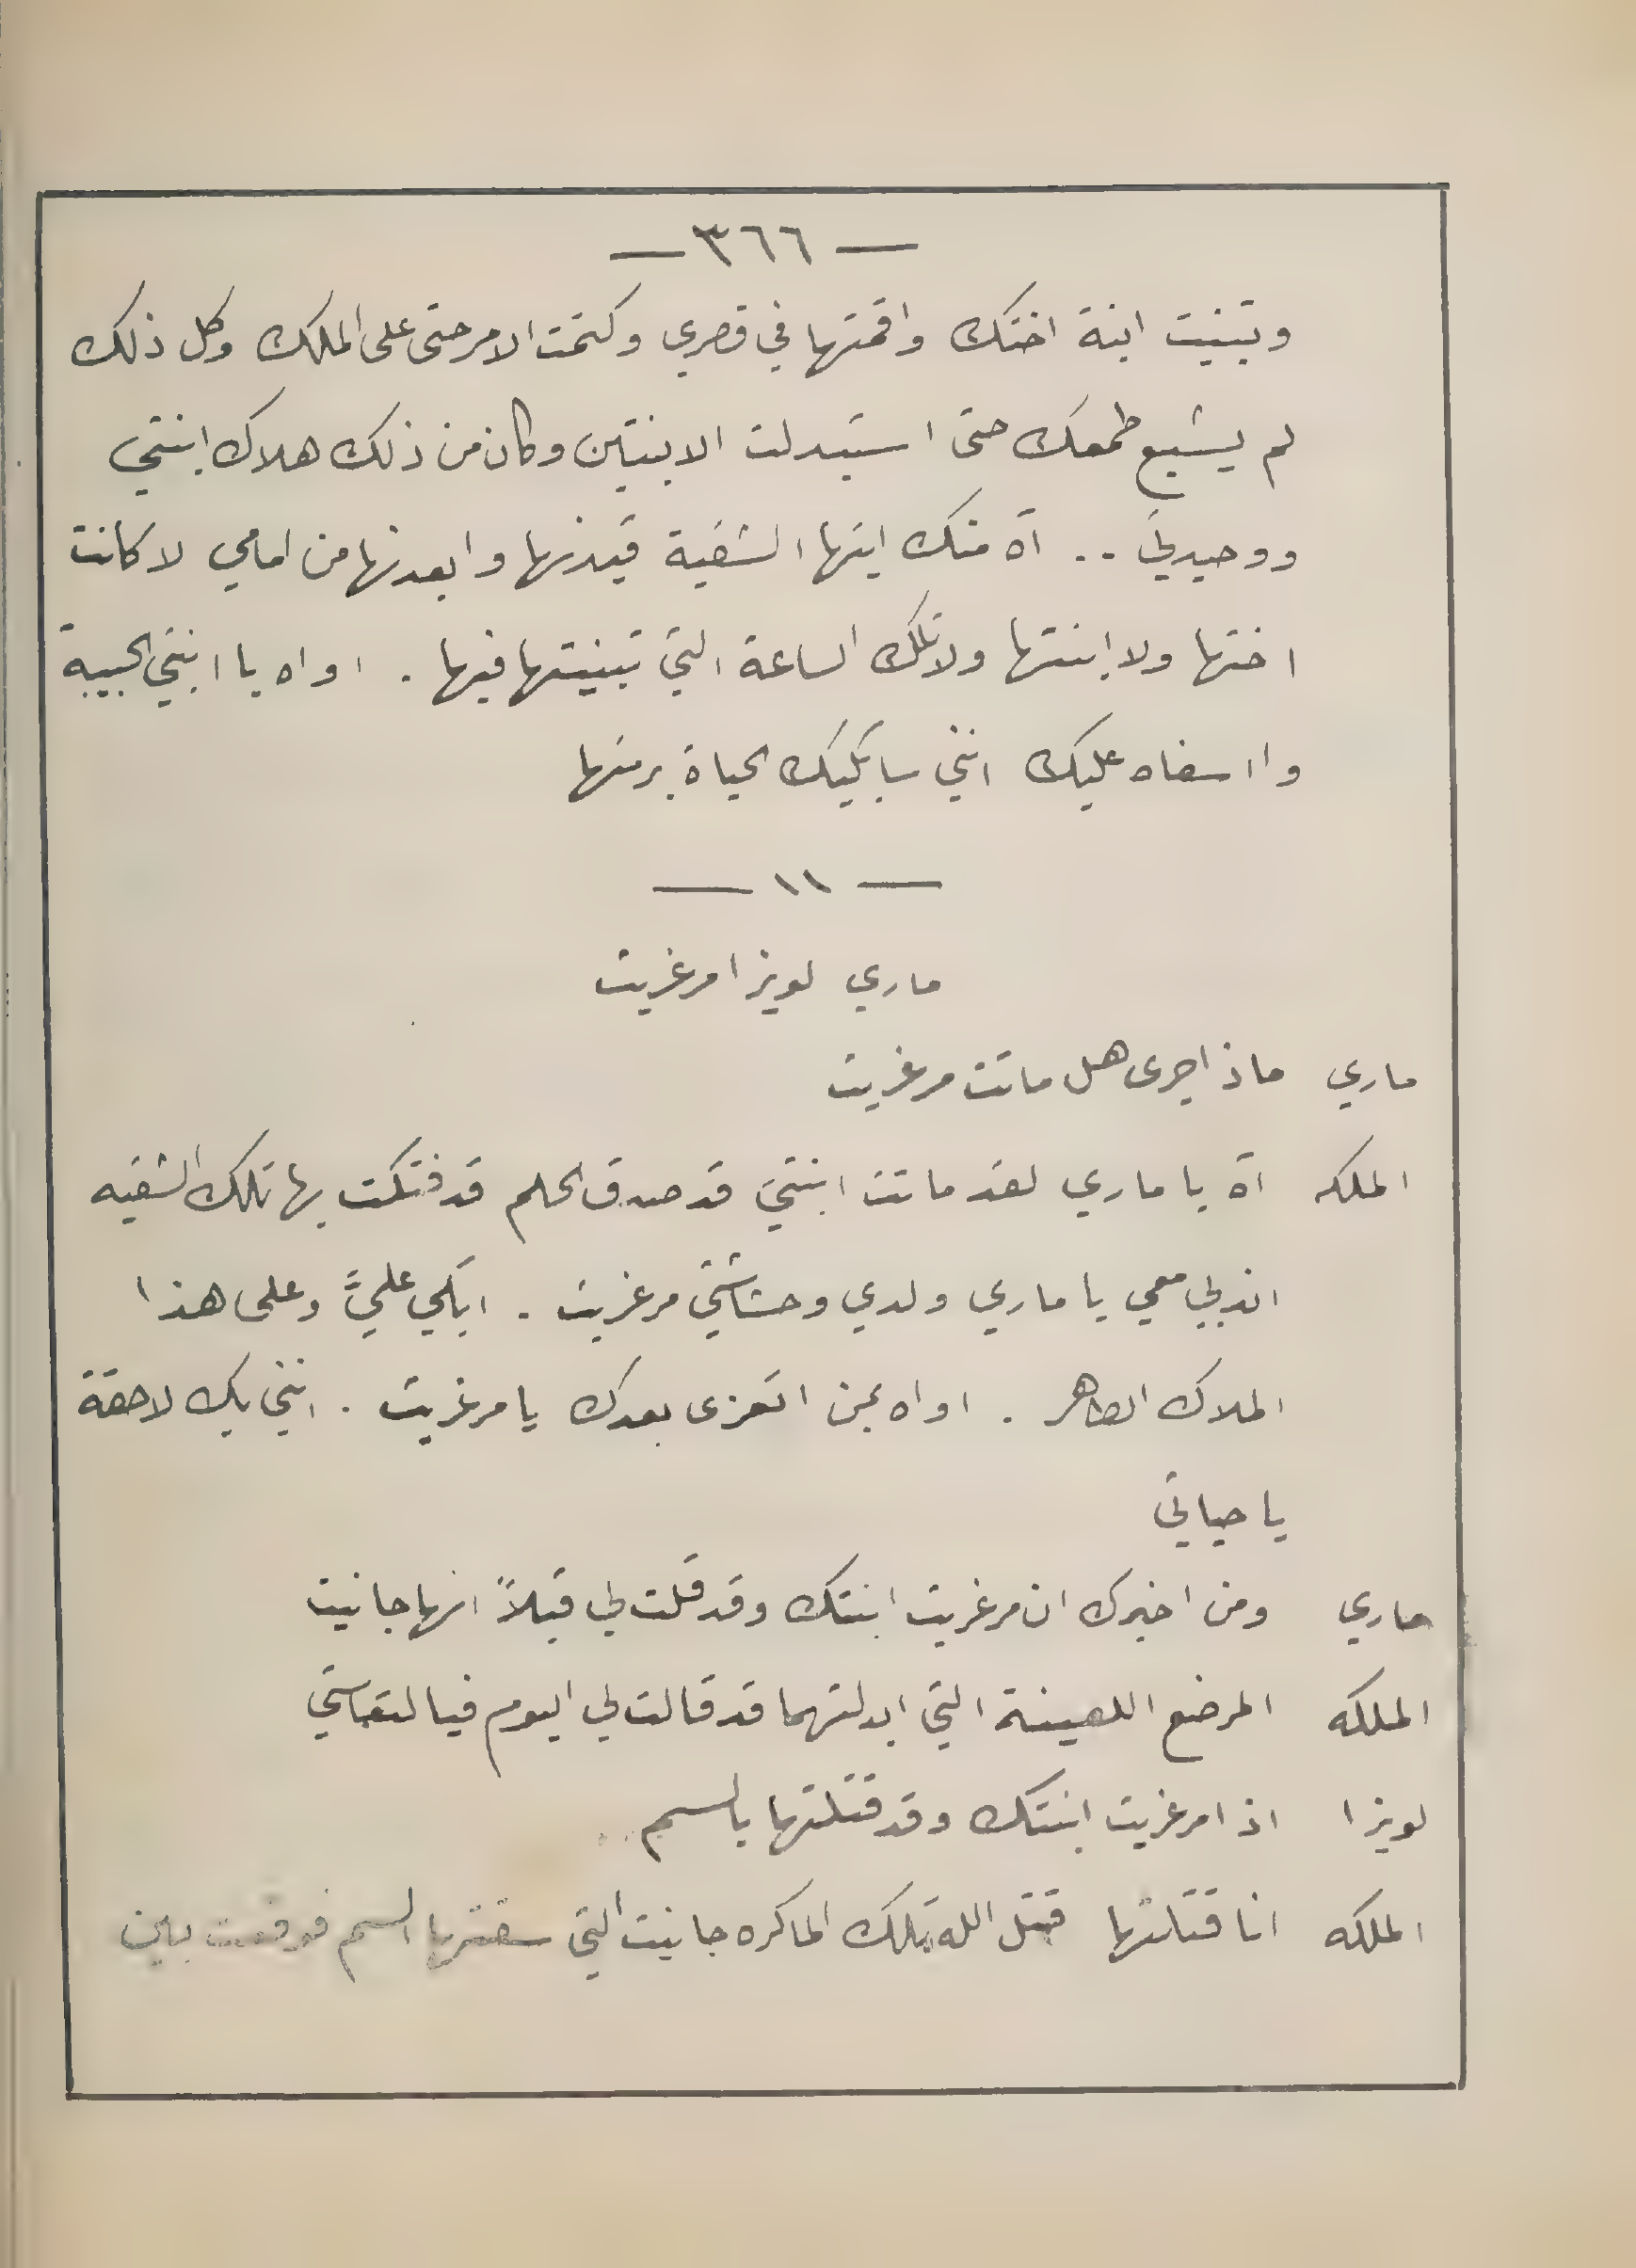 — ٣٦٦ —
وتبنيت ابنة اختك واقمتها في قصري وكتمت الامر حتى على الملك وكل ذلك
لم يشبع طمعك حتى استبدلت الابنتين وكان من ذلك هلاك ابنتي
ووحيدتي .. آه منك ايتها الشقية قيدنها وابعدنها من امامي لا كانت
اختها ولا ابنتها ولا تلك الساعة التي تبنيتها فيها . اواه يا ابنتي الحبيبة
وا اسفاه عليك انني سابكيك الحياة برمتها
— ١١ —
ماري لويزا مرغريت
ماري ماذا جرى هل ماتت مرغريت
الملكه آه يا ماري لقد ماتت ابنتي قد صدق الحلم قد فتكت بها تلك الشقيه
اندبي معي يا ماري ولدي وحشاشتي مرغريت . ابكي عليَّ وعلى هذا
الملاك الطاهر . اواه بمن اتعزى بعدك يا مرغريت . انني بك لاحقة
يا حياتي
ماري ومن اخبرك ان مرغريت ابنتك وقد قلت لي قبلاً انها جانيت
الملكه المرضع اللعينة التي ابدلتهما قد قالت لي اليوم فيا لتعاستي
لويزا اذا مرغريت ابنتك وقد قتلتها بالسم ..
الملكه انا قتلتها قتل الله تلك الماكره جانيت التي سقتها السم فوقعت بين